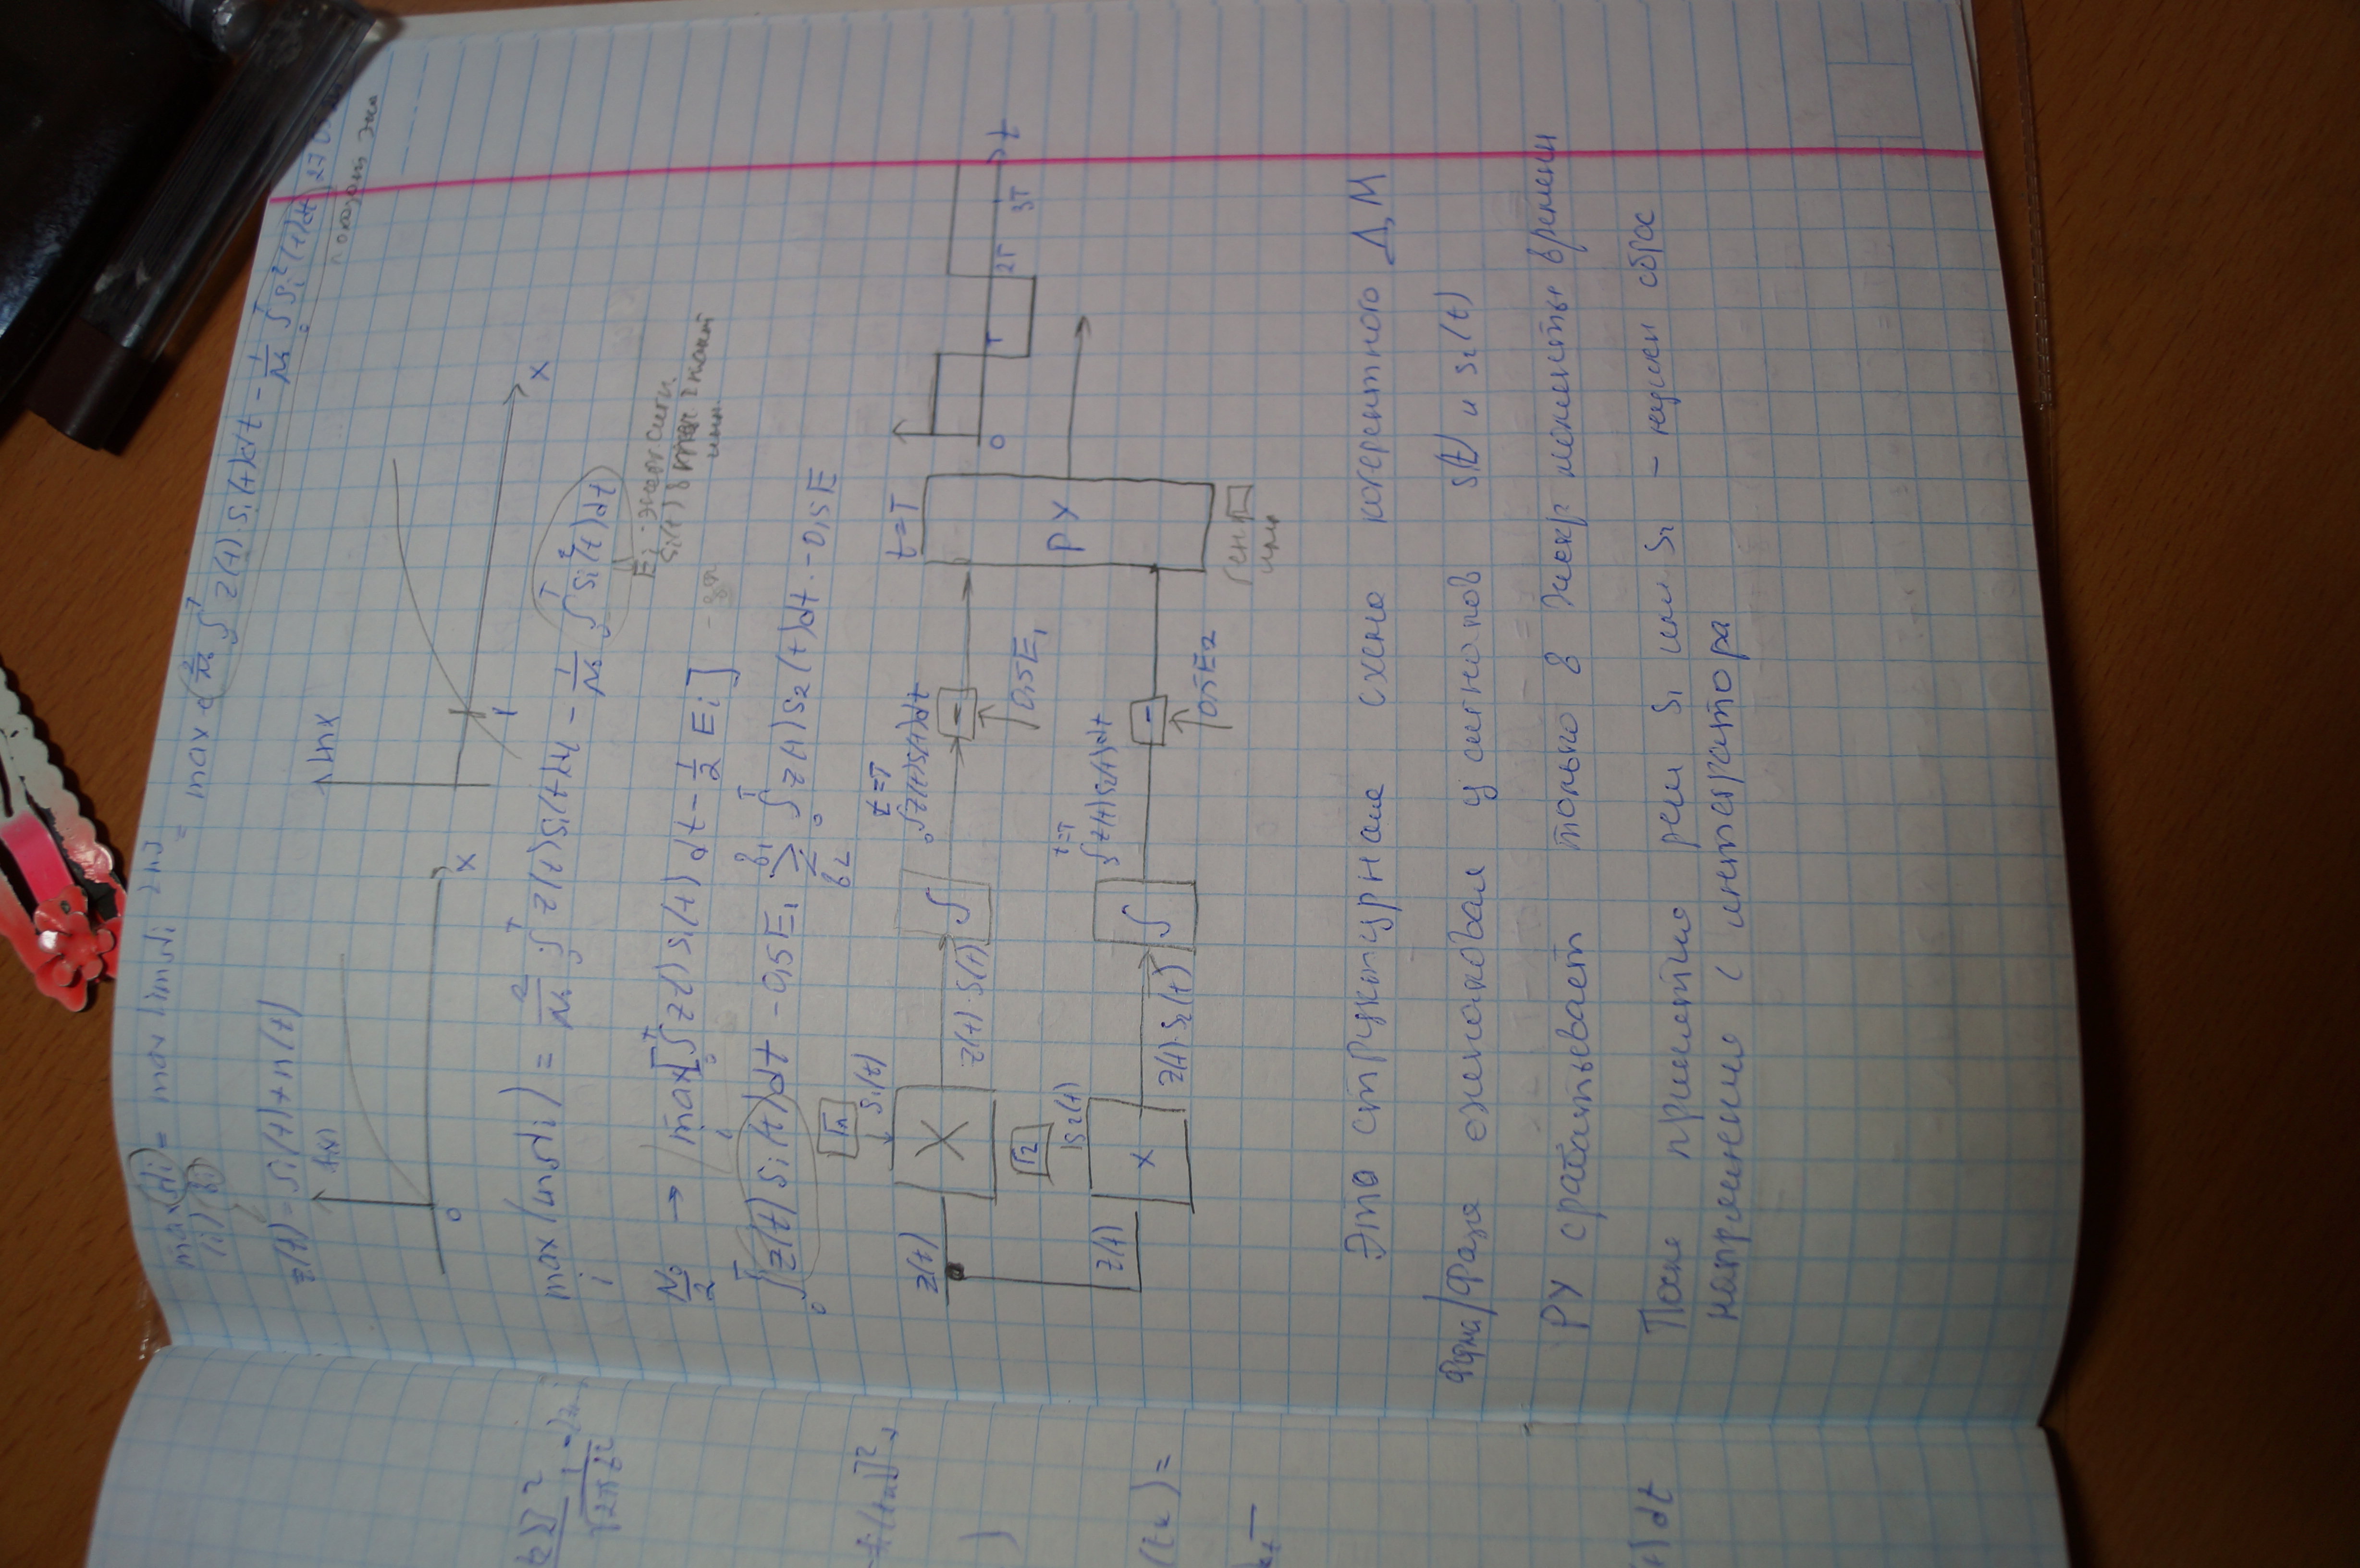 max Λi = max lim Λi = max e 2/N₀ ∫₀ᵀ z(t)·si(t)dt − 1/N₀ ∫₀ᵀ si²(t)dt
(i) bi
показат экс
z(t) = si(t)+n(t)
f(x)
lnx
0
x
1
x
max (ln Λi) = 2/N₀ ∫₀ᵀ z(t)si(t)dt − 1/N₀ ∫₀ᵀ si²(t)dt
i
Ei - энерг. сигн.
si(t)
N₀/2 → max[∫₀ᵀ z(t)si(t)dt − 1/2 Ei]
i
∫₀ᵀ z(t)si(t)dt − 0,5E₁ ≷ ∫₀ᵀ z(t)s₂(t)dt − 0,5E
b₁
b₂
s₁(t)
z(t)
X
z(t)·s(t)
∫
t=T
∫₀ z(t)s(t)dt
-
0,5E₁
t=T
0
T
2T
3T
t
Г2
s₂(t)
z(t)
x
z(t)·s₂(t)
∫
t=T
∫₀ z(t)s₂(t)dt
-
0,5E2
РУ
ген
имп
Это структурная схема когерентного ДМ
Форма/Фаза одинаковая у сигналов s(t) и s₂(t)
РУ срабатывает только в дискр моменты времени
После принятия реш s₁ или s₂ - нужен сброс
напряжения с интегратора
(tк)=
dt